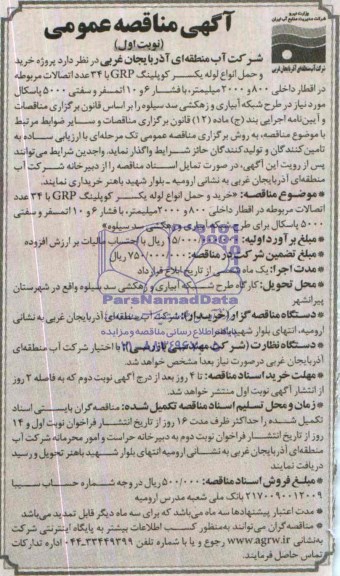 وزارت نیرو
شرکت مدیریت منابع آب ایران
شرکت آب منطقه‌ای آذربایجان غربی
آگهی مناقصه عمومی
(نوبت اول)
شرکت آب منطقه‌ای آذربایجان غربی در نظر دارد پروژه خرید
و حمل انواع لوله یکسر کوپلینگ GRP با ۳۴ عدد اتصالات مربوطه
در اقطار داخلی ۸۰۰ و ۲۰۰۰ میلیمتر، با فشار ۶ و ۱۰ اتمسفر و سفتی ۵۰۰۰ پاسکال
مورد نیاز در طرح شبکه آبیاری و زهکشی سد سیلوه را بر اساس قانون برگزاری مناقصات
و آیین‌نامه اجرایی بند (ج) ماده (۱۲) قانون برگزاری مناقصات و سایر ضوابط مرتبط
با موضوع مناقصه، به روش برگزاری مناقصه عمومی تک مرحله‌ای با ارزیابی ساده به
تامین کنندگان و تولیدکنندگان حائز شرایط واگذار نماید. واجدین شرایط می‌توانند
پس از رویت این آگهی، در صورت تمایل اسناد مناقصه را از دبیرخانه شرکت آب
منطقه‌ای آذربایجان غربی به نشانی ارومیه ـ بلوار شهید باهنر خریداری نمایند.
* موضوع مناقصه: «خرید و حمل انواع لوله یکسر کوپلینگ GRP با ۳۴ عدد
اتصالات مربوطه در اقطار داخلی ۸۰۰ و ۲۰۰۰ میلیمتر، با فشار ۶ و ۱۰ اتمسفر و سفتی
۵۰۰۰ پاسکال برای طرح شبکه آبیاری و زهکشی سد سیلوه»
* مبلغ برآورد اولیه: ریال با احتساب مالیات بر ارزش افزوده
* مبلغ تضمین شرکت در مناقصه: ۷۵۰/۰۰۰/۰۰۰ ریال
* مدت اجرا: یک ماه شمسی از تاریخ ابلاغ قرارداد
* محل تحویل: کارگاه طرح شبکه آبیاری و زهکشی سد سیلوه واقع در شهرستان
پیرانشهر
* دستگاه مناقصه گزار (خریدار): شرکت آب منطقه‌ای آذربایجان غربی به نشانی
ارومیه، انتهای بلوار شهید باهنر
* دستگاه نظارت (شرکت مهندسی بازرسی): با اختیار شرکت آب منطقه‌ای
آذربایجان غربی در صورت نیاز بعداً مشخص خواهد شد.
* مهلت خرید اسناد مناقصه: تا ۴ روز بعد از درج آگهی نوبت دوم که به فاصله ۲ روز
از انتشار آگهی نوبت اول منتشر خواهد شد.
* زمان و محل تسلیم اسناد مناقصه تکمیل شده: مناقصه‌گران بایستی اسناد
تکمیل شده را حداکثر ظرف مدت ۱۶ روز از تاریخ انتشار فراخوان نوبت اول و ۱۴
روز از تاریخ انتشار فراخوان نوبت دوم به دبیرخانه حراست و امور محرمانه شرکت آب
منطقه‌ای آذربایجان غربی به نشانی ارومیه انتهای بلوار شهید باهنر تحویل و رسید
دریافت نمایند
* مبلغ فروش اسناد مناقصه: ۵۰۰/۰۰۰ ریال در وجه شماره حساب سیبا
۲۱۷۰۰۹۰۰۱۲۰۰۹ بانک ملی شعبه مدرس ارومیه
* مدت اعتبار پیشنهادها سه ماه می‌باشد که برای سه ماه دیگر قابل تمدید می‌باشد
* مناقصه گران می‌توانند به‌منظور کسب اطلاعات بیشتر به پایگاه اینترنتی شرکت
به‌نشانی www.agrw.ir رجوع و یا با شماره تلفن ۳۳۴۴۹۳۹۹-۰۴۴ اداره تدارکات
تماس حاصل فرمایند.
ParsNamadData